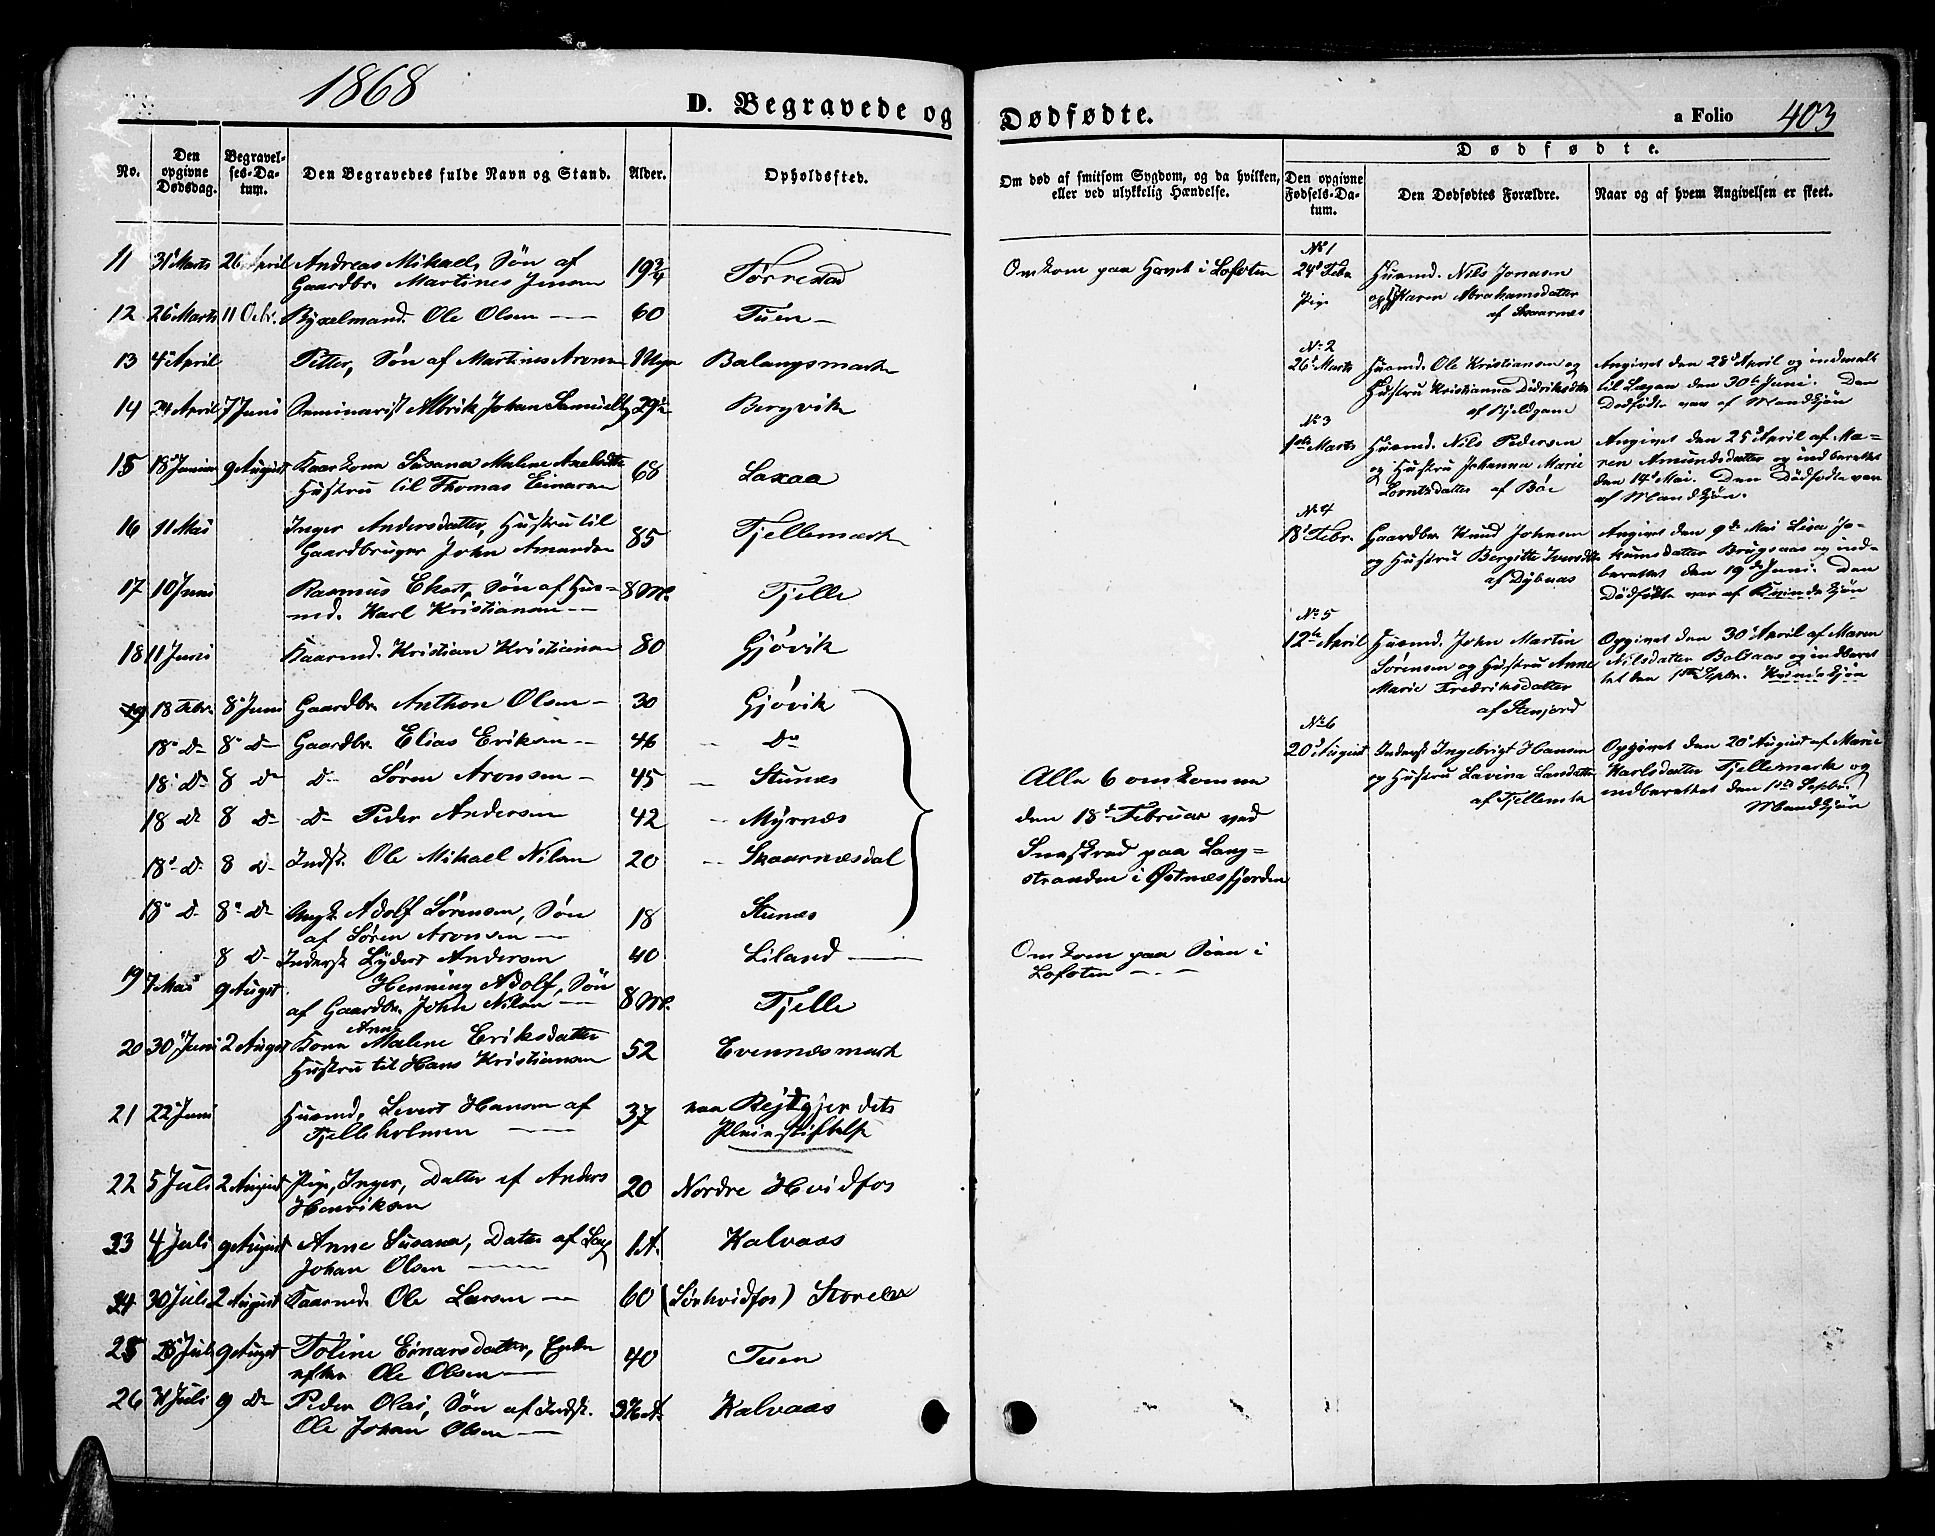 1868
D. Begravede og
Dødfødte.
a Folio 403
No.
Den opgivne Dødsdag.
Begravelses-Datum.
Den Begravedes fulde Navn og Stand.
Alder.
Opholdssted.
Om død af smitsom Sygdom, og da hvilken, eller ved ulykkelig Hændelse.
Dødfødte.
Den opgivne Fødsels-Datum.
Den Dødfødtes Forældre.
Naar og af hvem Angivelsen er skeet.
11 31 Marts 26 April Andreas Mikael, Søn af 19 3/4 Tørrestad Omkom paa Havet i Lofoten
Gaardbr. Martines Jensen
12 26 Marts 11 Octr. Byxelmand Ole Olsen 60 Tuen
13 4 April Petter, Søn af Martines Aronsen Balangsmark
14 24 April 7 Juni Seminarist Albrik Johan Samuels 29 1/2 Bergvik
15 18 Januar 9 August Kaarkona Susana Malene Axelsdtr 68 Laxaa
Hustru til Thomas Einarsen
16 11 Mai Inger Andersdatter, Hustru til 85 Tjellemark
Gaardbruger John Amundsen
17 10 Juni Rasmus Ekert, Søn af Hus- 8 M. Tjelle
md. Karl Kristiansen
18 11 Juni Kaarmd. Kristian Kristiansen 80 Gjøvik
19 18 Febr. 8 Juni Gaardbr. Anthon Olsen 30 Gjøvik
18 Do 8 Do Gaardbr. Elias Eriksen 46 Do
18 Do 8 Do Do Søren Aronsen 45 Stunæs
18 Do 8 Do Do Peder Andersen 42 Myrnæs
18 Do 8 Do Indst. Ole Mikael Nilsen 20 Skaarnæsdal
18 Do 8 Do Ungk. Adolf Sørensen, Søn 18 Stunæs
af Søren Aronsen
Alle 6 omkomne
den 18de Februar ved
Sneskred paa Lang-
stranden i Østnæsfjorden
8 Do Inderst Lydert Andersen 40 Liland Omkom paa Søen i
Lofoten
19 7 Mai 9 August Henning Adolf, Søn 8 M. Tjelle
af Gaardbr. John Nilsen
20 30 Juni 2 August Kona Anne Malene Eriksdatter 52 Evennæsmark
Hustru til Hans Kristiansen
21 22 Juni Husmd. Sivert Hansen af 37 paa Rejtgjerdets
Tjelleholmen Pleiestiftelse
22 5 Juli 2 August Pige, Inger, Datter af Anders 20 Nordre Hvidfos
Henriksen
23 4 Juli 9 August Anne Susana, Datter af 1 A. Kalvaas
Johan Olsen
24 30 Juli 2 August Kaarmd. Ole Larsen 60 (Sørhvidfos) Storelv
25 Juli 9 August Toline Einarsdatter, Enke 40 Tuen
efter Ole Olsen
26 Juli 9 Do Peder Olai, Søn af Indst. 3 1/2 A. Kalvaas
Ole Johan Olsen
No 1
24 Febr Husmd. Nils Jonasen
Pige og Karen Abrahamsdatter
af Skaarnæs
No 2
26 Marts Husmd. Ole Kristiansen og Angivet den 28 April og indmeldt
Hustru Kristianna Didriksdtr til Lagen den 30te Juni. Den
af Bjeldgam Dødfødte var af Mandkjøn
No 3
1ste Marts Husmd. Nils Pedersen Angivet den 25 April af Ma-
og Hustru Johanna Marie ren Amundsdatter og indberettet
Lorntsdatter af Bøe den 14 Mai. Den Dødfødte var
af Mandkjøn.
No 4
18 Febr. Gaardbr. Knud Johnsen Angivet den 9de Mai Lisa Jo-
og Hustru Bergitte Iversdtr kumsdatter Brugsaas og ind-
af Dybaas berettet den 19de Juni. Den
Dødfødte var af Kvindekjøn
No 5
12te April Husmd. John Martin Opgivet den 30 April af Maren
Sørensen og Hustru Anne Nilsdatter Balsaas og indberet-
Marie Fredriksdatter tet den 1ste Sepbr. Kvindekjøn
af Stenjord
No 6
20 August Inderst Ingebrigt Hansen Opgivet den 20 August af Marie
og Hustru Lavina Larsdatter Karlsdatter Tjellemark og
af Tjellemark indberettet den 1ste Sepbr.
Mandkjøn